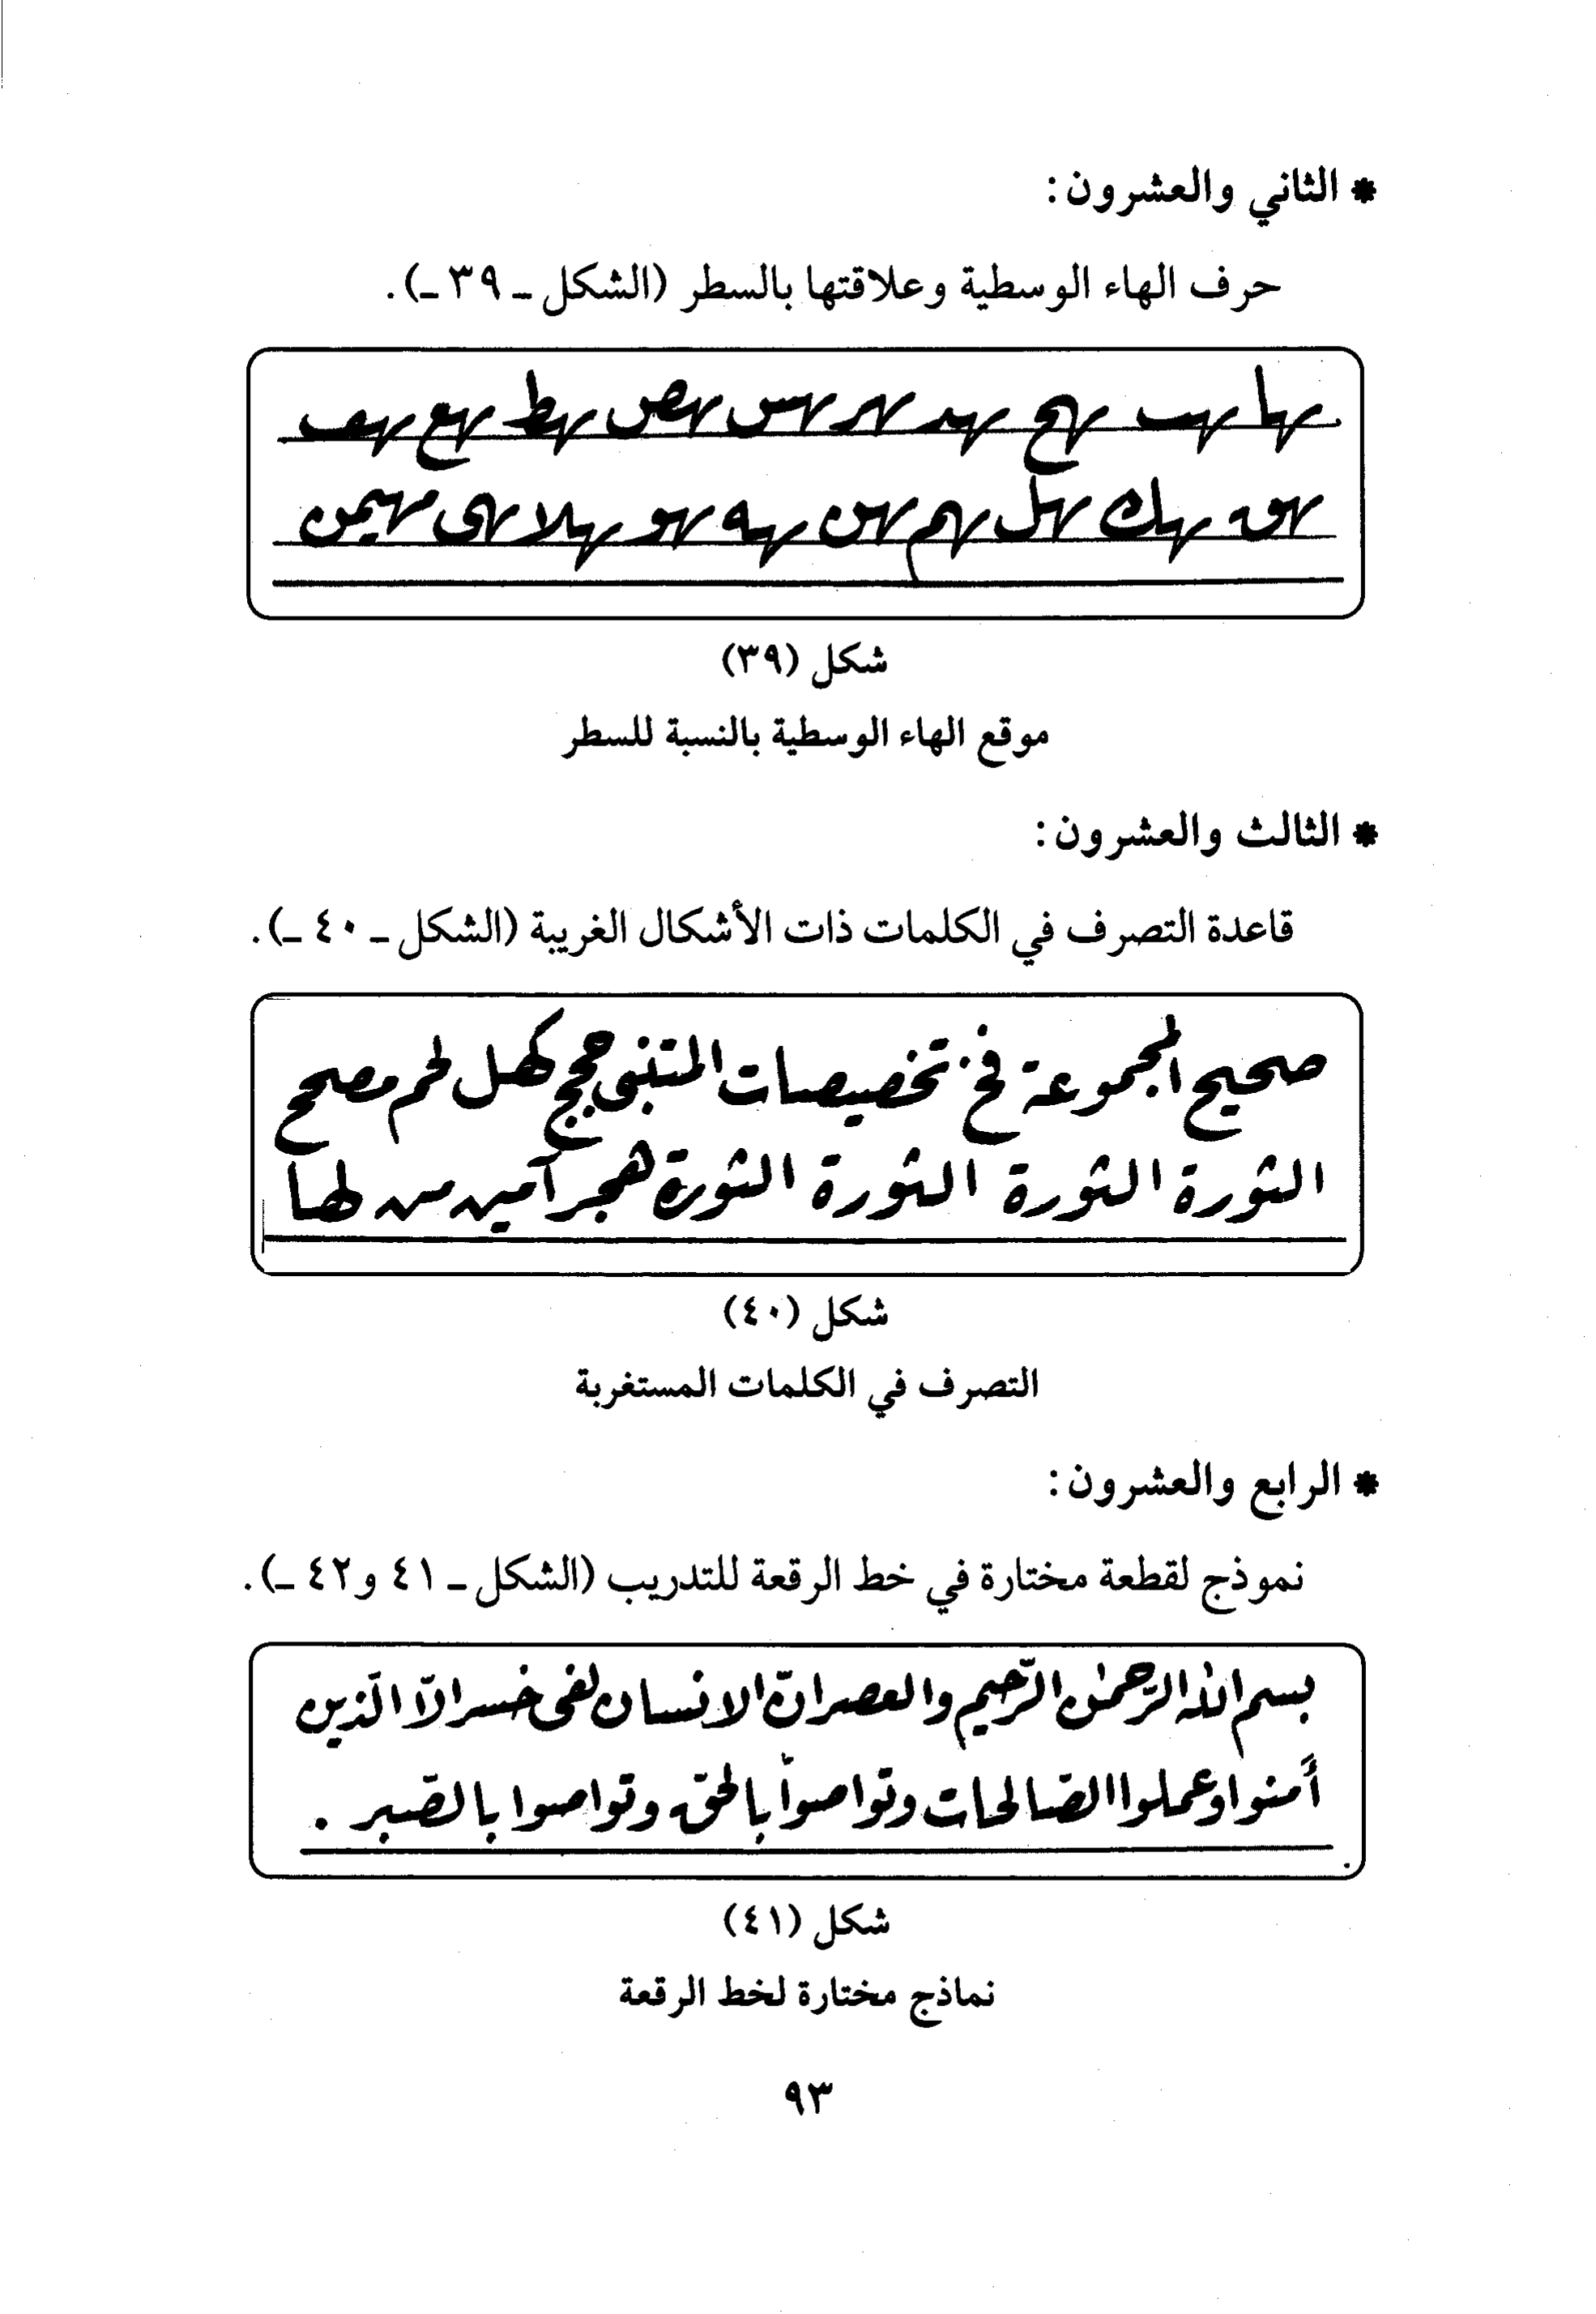 * الثاني والعشرون:
حرف الهاء الوسطية وعلاقتها بالسطر (الشكل ـ ٣٩ ـ).
ـها ـهب ـهح ـهد ـهر ـهس ـهص ـهط ـهع ـهف
ـهق ـهك ـهل ـهم ـهن ـهه ـهو ـهلا ـهى مهيمن
شكل (٣٩)
موقع الهاء الوسطية بالنسبة للسطر
* الثالث والعشرون:
قاعدة التصرف في الكلمات ذات الأشكال الغريبة (الشكل ـ ٤٠ ـ).
صحيح المجموعة فخ تخصيصات المتنبى حجج كهل لحم مصحح
الثورة الثورة الثورة الثورة هجر آمين من لها
شكل (٤٠)
التصرف في الكلمات المستغربة
* الرابع والعشرون:
نموذج لقطعة مختارة في خط الرقعة للتدريب (الشكل ـ ٤١ و٤٢ ـ).
بسم الله الرّحمٰن الرّحيم والعصر انّ الانسان لفى خسر الاّ الّذين
أمنوا وعملوا الصّالحات وتواصوا بالحقّ وتواصوا بالصّبر .
شكل (٤١)
نماذج مختارة لخط الرقعة
٩٣